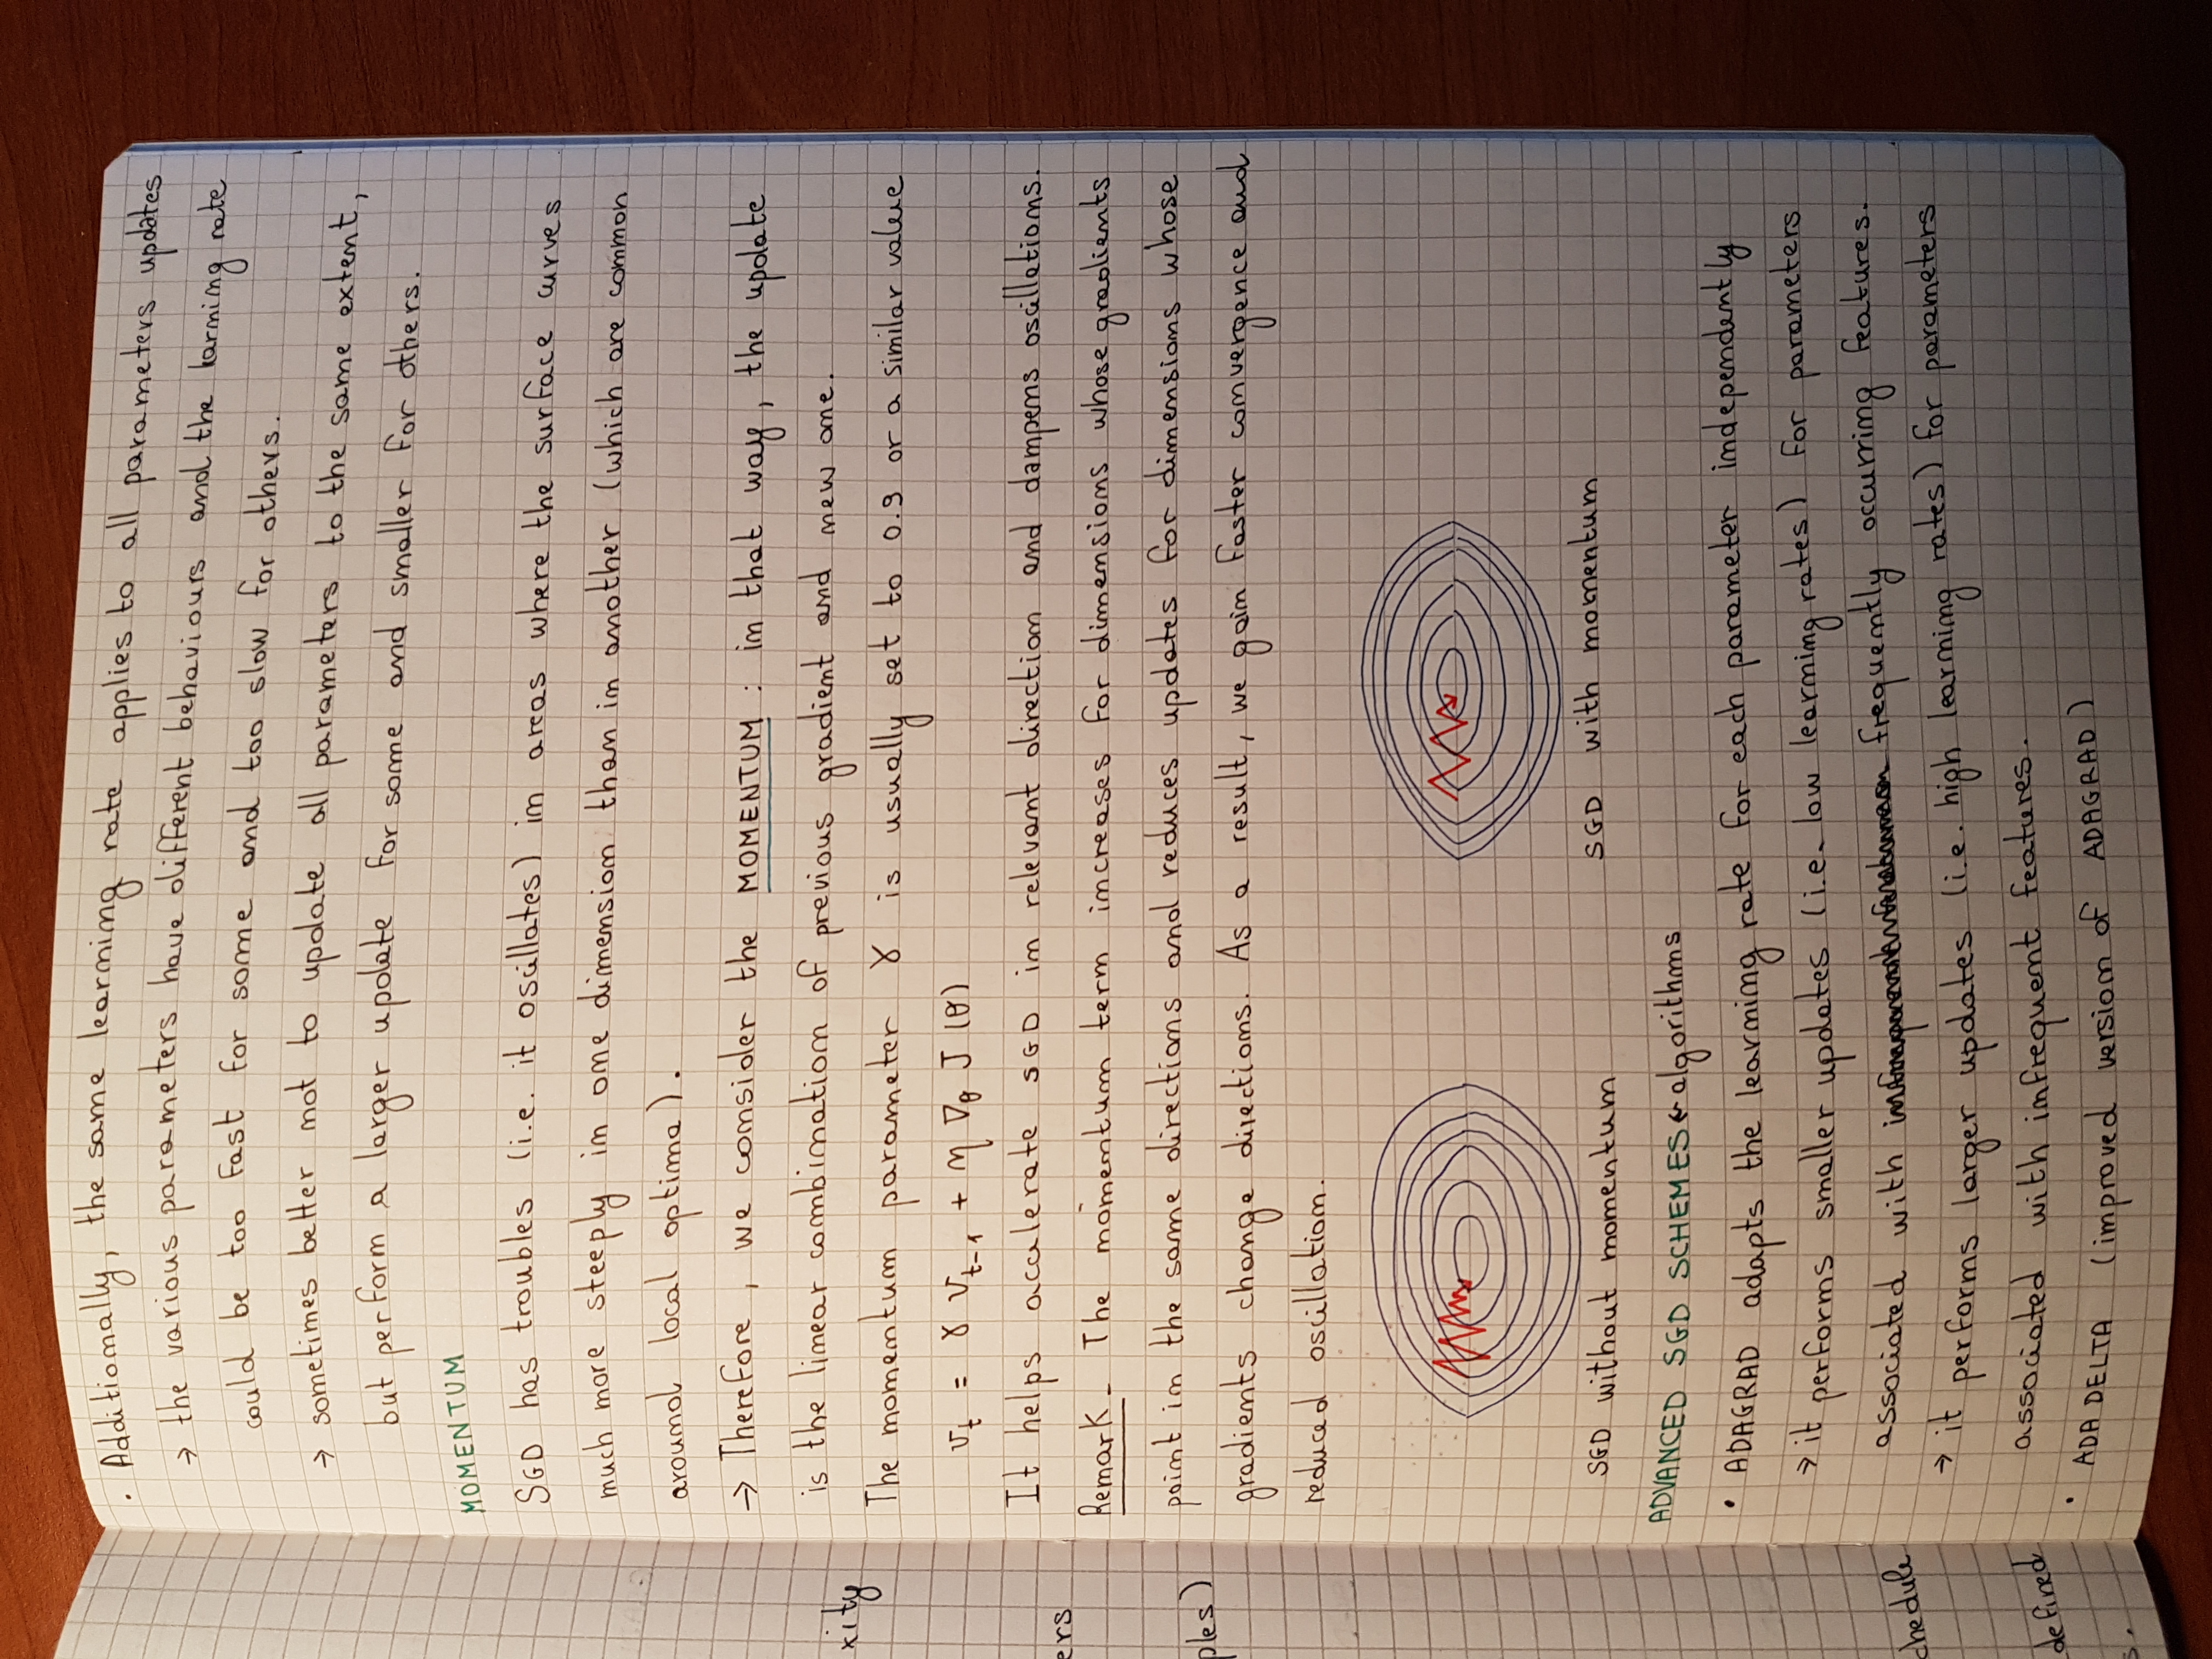 . Additionally, the same learning rate applies to all parameters updates
→ the various parameters have different behaviours and the larning rate
could be too fast for some and too slow for others.
→ sometimes better not to update all parameters to the same extent,
but perform a larger update for some and smaller for others.
MOMENTUM
SGD has troubles (i.e. it oscillates) in areas where the surface curves
much more steeply in one dimension than in another (which are common
around local optima).
→ Therefore, we consider the MOMENTUM : in that way, the update
is the linear combination of previous gradient and new one.
The momentum parameter γ is usually set to 0.9 or a similar value
v_t = γ v_{t-1} + η ∇_θ J(θ)
It helps accelerate SGD in relevant direction and dampens oscillations.
Remark - The momentum term increases for dimensions whose gradients
point in the same directions and reduces updates for dimensions whose
gradients change directions. As a result, we gain faster convergence and
reduced oscillation.
SGD without momentum
SGD with momentum
ADVANCED SGD SCHEMES ← algorithms
• ADAGRAD adapts the learning rate for each parameter independently
→ it performs smaller updates (i.e. low learning rates) for parameters
associated with frequently occurring features.
→ it performs larger updates (i.e. high learning rates) for parameters
associated with infrequent features.
• ADA DELTA (improved version of ADAGRAD)
xity
ers
ples)
chedule
defined
s.